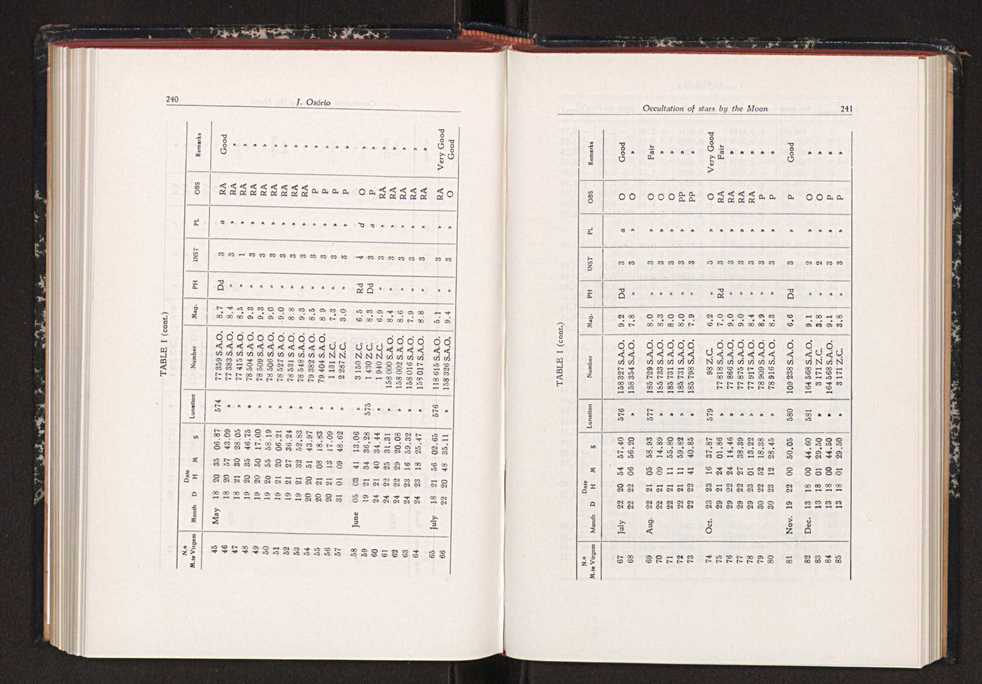 240
J. Osório
TABLE I (cont.)
N.º M.te Virgem Month D Date H M S Lunation Number Mag. PH INST PL OBS Remarks
45 May 18 20 35 06.87 574 77 359 S.A.O. 8.7 Dd 3 a RA Good
46 18 20 57 43.09 » 77 383 S.A.O. 8.4 » 3 » RA »
47 18 21 30 28.05 » 77 415 S.A.O. 8.5 » 1 » RA »
48 19 20 35 46.75 » 78 504 S.A.O. 9.3 » 3 » RA »
49 19 20 50 17.00 » 78 509 S.A.O. 9.3 » 3 » RA »
50 19 20 55 58.19 » 78 506 S.A.O. 9.0 » 3 » RA »
51 19 21 20 06.21 » 78 527 S.A.O. 9.0 » 3 » RA »
52 19 21 27 36.24 » 78 531 S.A.O. 8.8 » 3 » RA »
53 19 21 32 52.83 » 78 548 S.A.O. 9.3 » 3 » RA »
54 20 20 51 43.97 » 79 382 S.A.O. 8.5 » 3 » P »
55 20 21 08 18.83 » 79 404 S.A.O. 8.9 » 3 » P »
56 20 21 13 17.09 » 1 131 Z.C. 7.3 » 3 » P »
57 31 01 09 48.62 » 2 287 Z.C. 3.0 » 3 » P »
58 June 05 03 41 13.06 » 3 150 Z.C. 6.5 Rd 4 d O »
59 19 21 34 36.28 575 1 430 Z.C. 8.3 Dd 3 a P »
60 24 21 40 34.44 » 1 940 Z.C. 6.9 » 3 » RA »
61 24 22 25 31.31 » 158 000 S.A.O. 8.4 » 3 » RA »
62 24 22 29 20.08 » 158 002 S.A.O. 8.6 » 3 » RA »
63 24 23 16 59.32 » 158 016 S.A.O. 7.9 » 3 » RA »
64 24 23 18 25.47 » 158 017 S.A.O. 8.8 » 3 » RA »
65 July 18 21 56 02.65 576 118 615 S.A.O. 5.1 » 3 » RA Very Good
66 22 20 48 35.11 » 158 326 S.A.O. 9.4 » 3 » O Good
Occultation of stars by the Moon
241
TABLE I (cont.)
N.º M.te Virgem Month D Date H M S Lunation Number Mag. PH INST PL OBS Remarks
67 July 22 20 54 57.40 576 158 327 S.A.O. 9.2 Dd 3 a O Good
68 22 22 06 56.20 » 158 354 S.A.O. 7.8 » 3 » O »
69 Aug. 22 21 05 58.93 577 185 729 S.A.O. 8.0 » 3 » O Fair
70 22 21 09 14.89 » 185 733 S.A.O. 8.3 » 3 » O »
71 22 21 11 55.80 » 185 731 S.A.O. 8.0 » 3 » O »
72 22 21 11 59.82 » 185 731 S.A.O. 8.0 » 3 » PP »
73 22 22 41 40.85 » 185 798 S.A.O. 7.9 » 3 » PP »
74 Oct. 23 23 16 37.87 579 98 Z.C. 6.2 » 3 » O Very Good
75 29 21 24 01.86 » 77 818 S.A.O. 7.0 Rd 3 » RA Fair
76 29 22 24 14.46 » 77 866 S.A.O. 9.0 » 3 » RA »
77 29 22 27 38.39 » 77 875 S.A.O. 9.0 » 3 » RA »
78 29 23 01 13.22 » 77 917 S.A.O. 8.4 » 3 » RA »
79 30 22 52 18.38 » 78 909 S.A.O. 8.9 » 3 » P »
80 30 23 12 28.45 » 78 916 S.A.O. 8.3 » 3 » P »
81 Nov. 19 22 00 50.05 580 109 238 S.A.O. 6.6 Dd 3 » P Good
82 Dec. 13 18 00 44.60 581 164 568 S.A.O. 9.1 » 2 » O »
83 13 18 01 29.50 » 3 171 Z.C. 3.8 » 2 » O »
84 13 18 00 44.50 » 164 568 S.A.O. 9.1 » 3 » P »
85 13 18 01 29.50 » 3 171 Z.C. 3.8 » 3 » P »